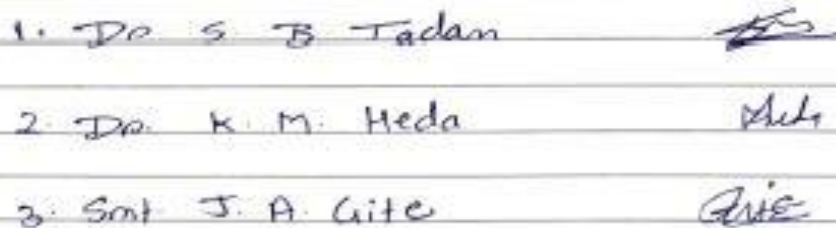 1. Dr S B Tadan
2. Dr. K. M. Meda
3. Smt J. A. Gite